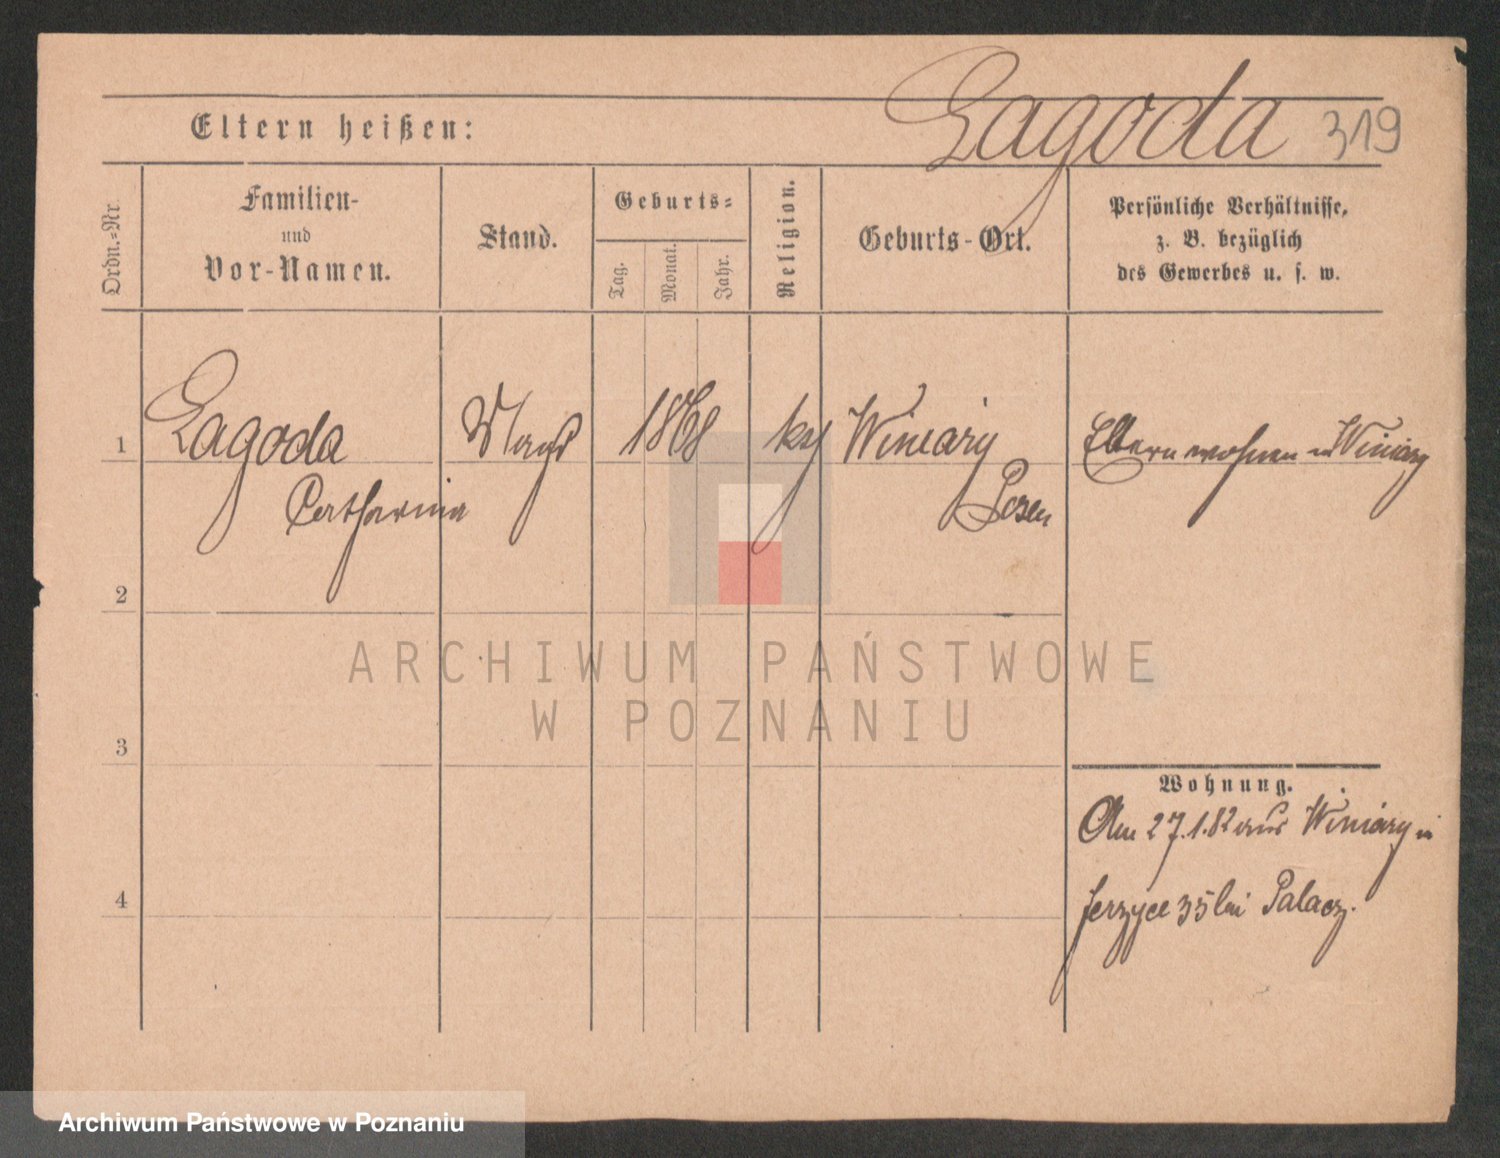 Lagoda 319
Eltern heißen:
Ordn.-Nr.
Familien-
und
Vor-Namen.
Stand.
Geburts-
Tag.
Monat.
Jahr.
Religion.
Geburts-Ort.
Persönliche Verhältnisse,
z. B. bezüglich
des Gewerbes u. s. w.
1 Lagoda Magd 1868 Winiary Eltern wohnen in Winiary
Catharina Posen
2
3
4
ARCHIWUM PAŃSTWOWE
W POZNANIU
Wohnung.
Am 27.1.82 aus Winiary in
Jerzyce 35 bei Palacz.
Archiwum Państwowe w Poznaniu